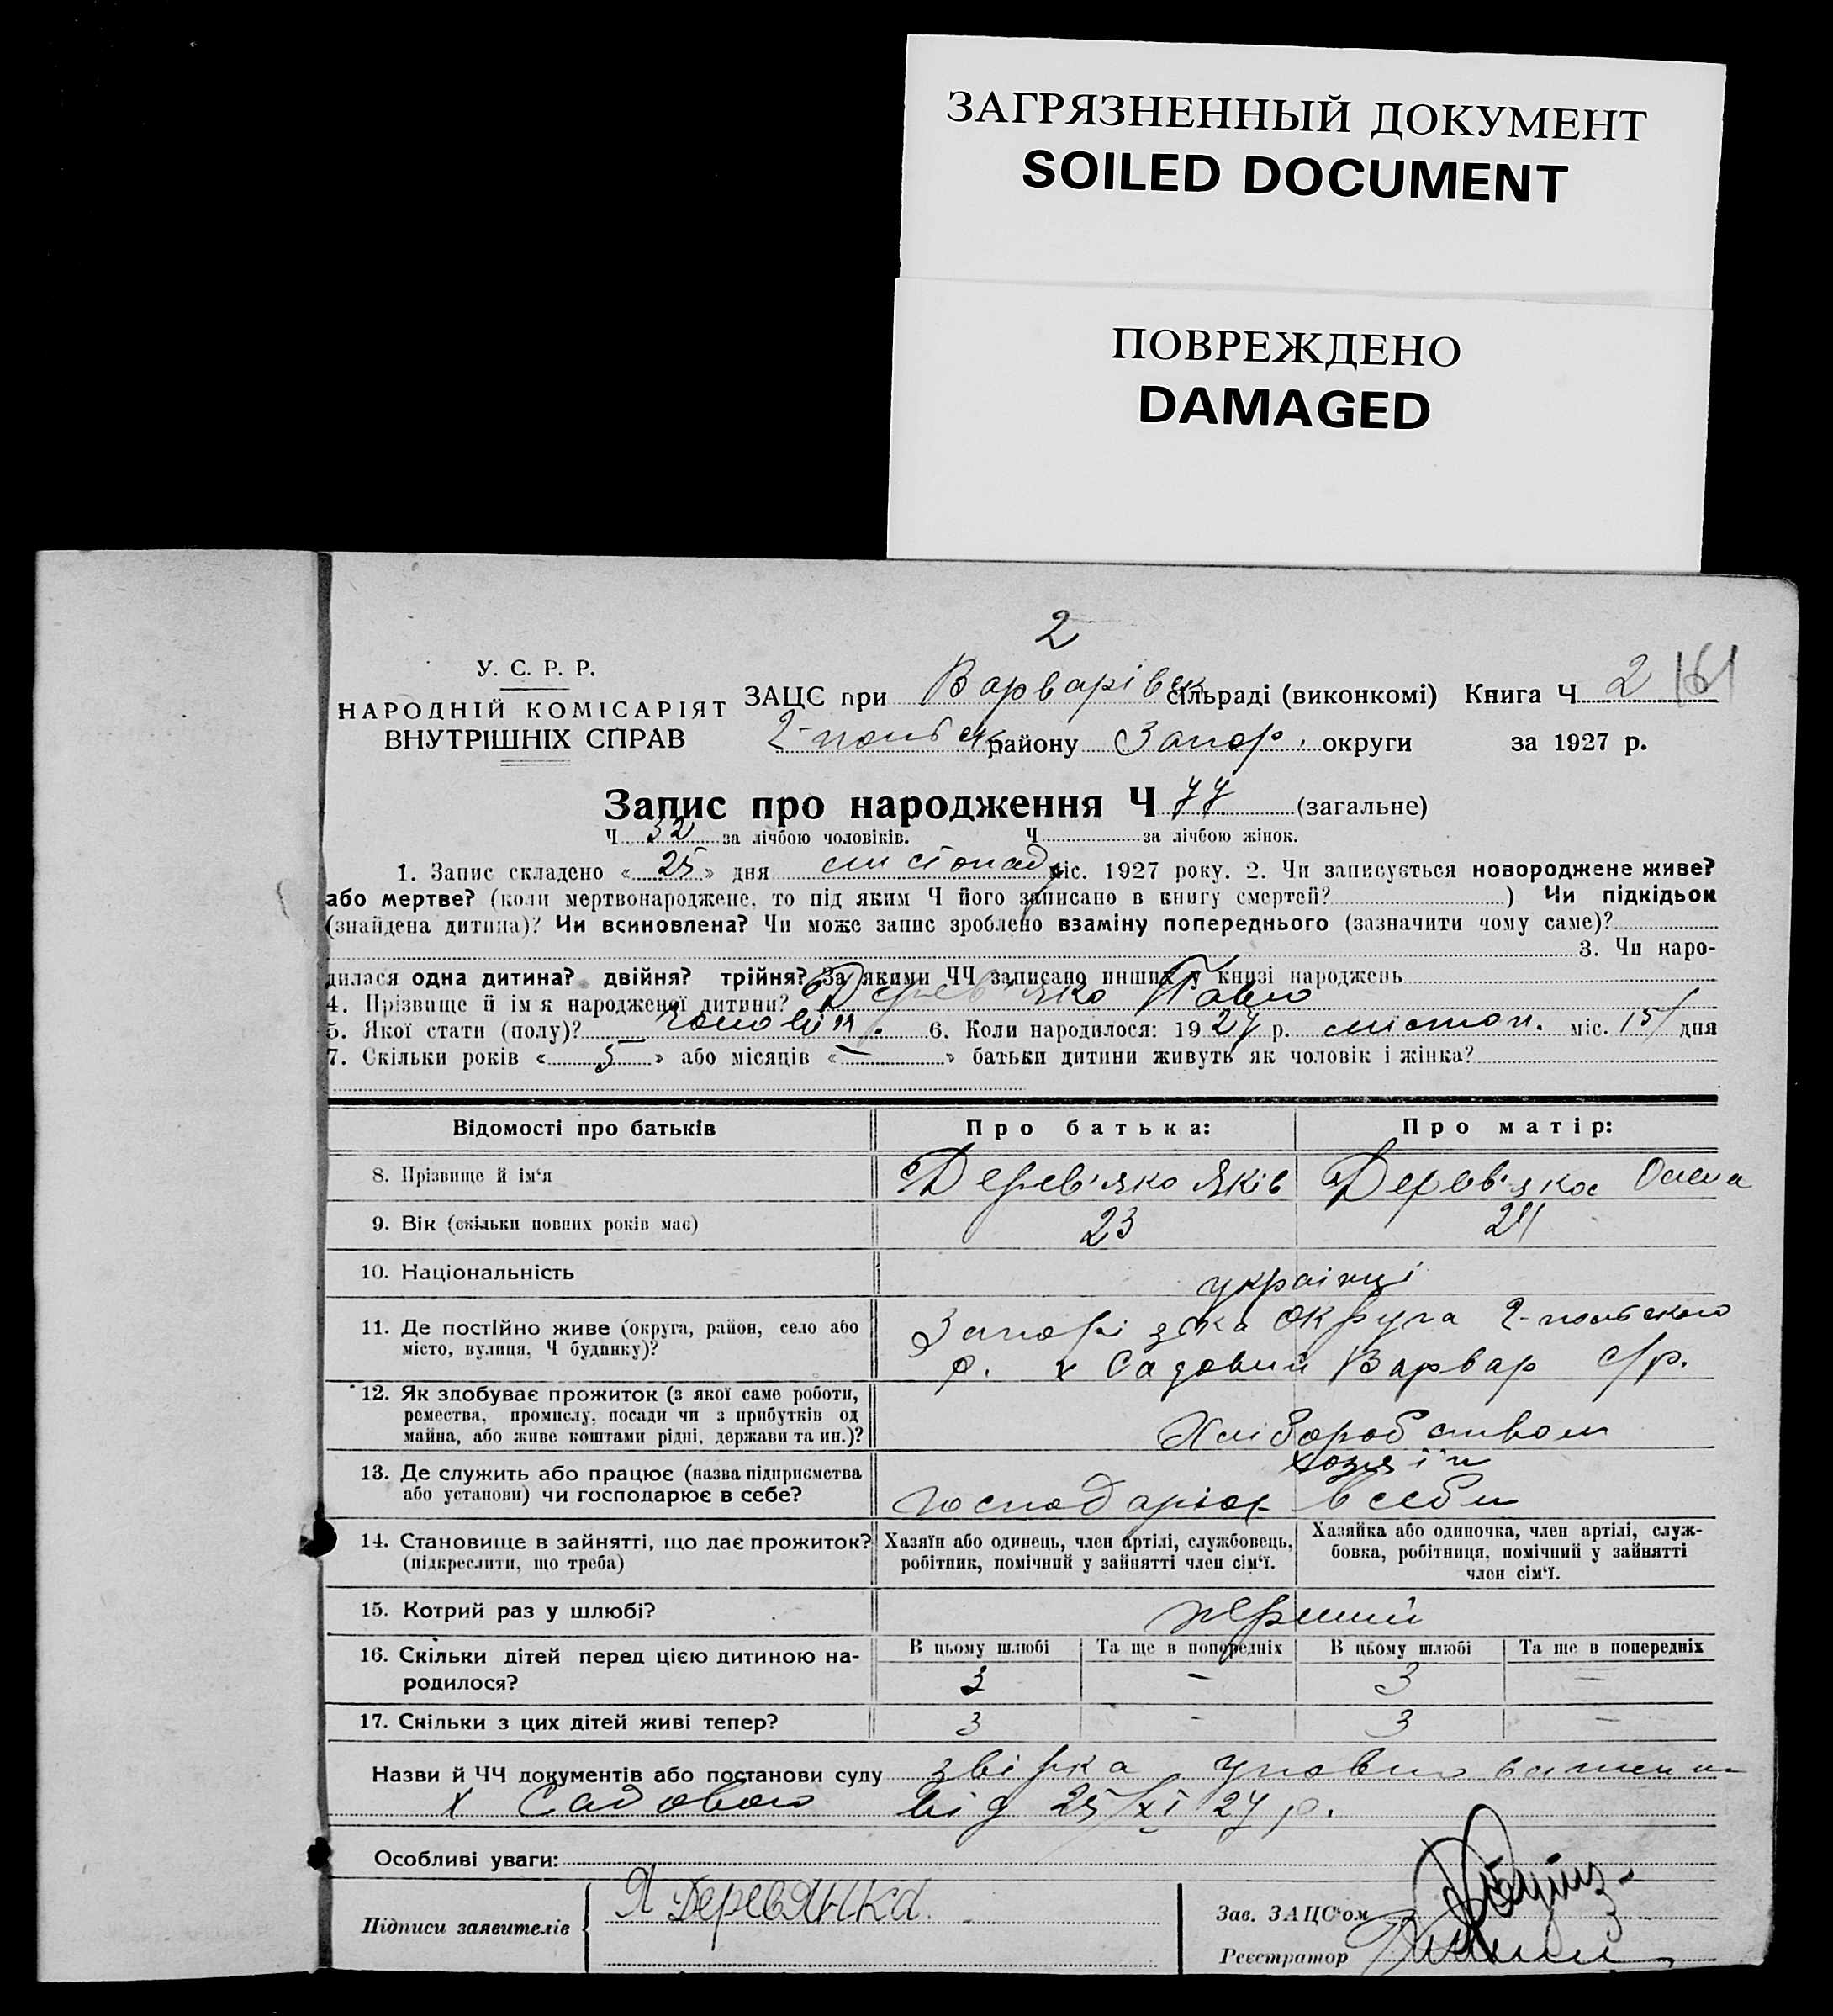 ЗАГРЯЗНЕННЫЙ ДОКУМЕНТ
SOILED DOCUMENT
ПОВРЕЖДЕНО
DAMAGED
2
У. С. Р. Р.
НАРОДНІЙ КОМІСАРІЯТ
ВНУТРІШНІХ СПРАВ
ЗАЦС при Варварівськ сільраді (виконкомі) Книга Ч 2 161
району Запор. округи за 1927 р.
Запис про народження Ч 77 (загальне)
Ч 32 за лічбою чоловіків. Ч за лічбою жінок.
1. Запис складено « 25 » дня листопаду міс. 1927 року. 2. Чи записується новороджене живе?
або мертве? (коли мертвонароджене, то під яким Ч його записано в книгу смертей? ) Чи підкідьок
(знайдена дитина)? Чи всиновлена? Чи може запис зроблено взаміну попереднього (зазначити чому саме)?
3. Чи наро-
дилася одна дитина? двійня? трійня? За якими ЧЧ записано инших у книзі народжень
4. Прізвище й ім я народженої дитини? Дерев'яко Павло
5. Якої стати (полу)? чоловіч. 6. Коли народилося: 1927 р. листоп. міс. 15 дня
7. Скільки років « 5 » або місяців « — » батьки дитини живуть як чоловік і жінка?
Відомості про батьків Про батька: Про матір:
8. Прізвище й ім‘я Дерев'яко Яків Дерев'яко Олена
9. Вік (скільки повних років має) 23 24
10. Національність українці
11. Де постійно живе (округа, район, село або
місто, вулиця, Ч будинку)?
Запорізька округа
р. х Садовий Варвар с/р.
12. Як здобуває прожиток (з якої саме роботи,
ремества, промислу, посади чи з прибутків од
майна, або живе коштами рідні, держави та ин.)?
Хліборобством
хозяїн
13. Де служить або працює (назва підприємства
або установи) чи господарює в себе?
господарює в себе
14. Становище в зайнятті, що дає прожиток?
(підкреслити, що треба)
Хазяїн або одинець, член артілі, службовець,
робітник, помічний у зайнятті член сім‘ї.
Хазяйка або одиночка, член артілі, служ-
бовка, робітниця, помічний у зайнятті
член сім‘ї.
15. Котрий раз у шлюбі? перший
16. Скільки дітей перед цією дитиною на-
родилося?
В цьому шлюбі Та ще в попередніх В цьому шлюбі Та ще в попередніх
3 - 3 —
17. Скільки з цих дітей живі тепер? 3 - 3 —
Назви й ЧЧ документів або постанови суду звірка
х Садового від 25/XI 27 р.
Особливі уваги:
Підписи заявителів Я Деревянка.
Зав. ЗАЦС‘ом
Реєстратор